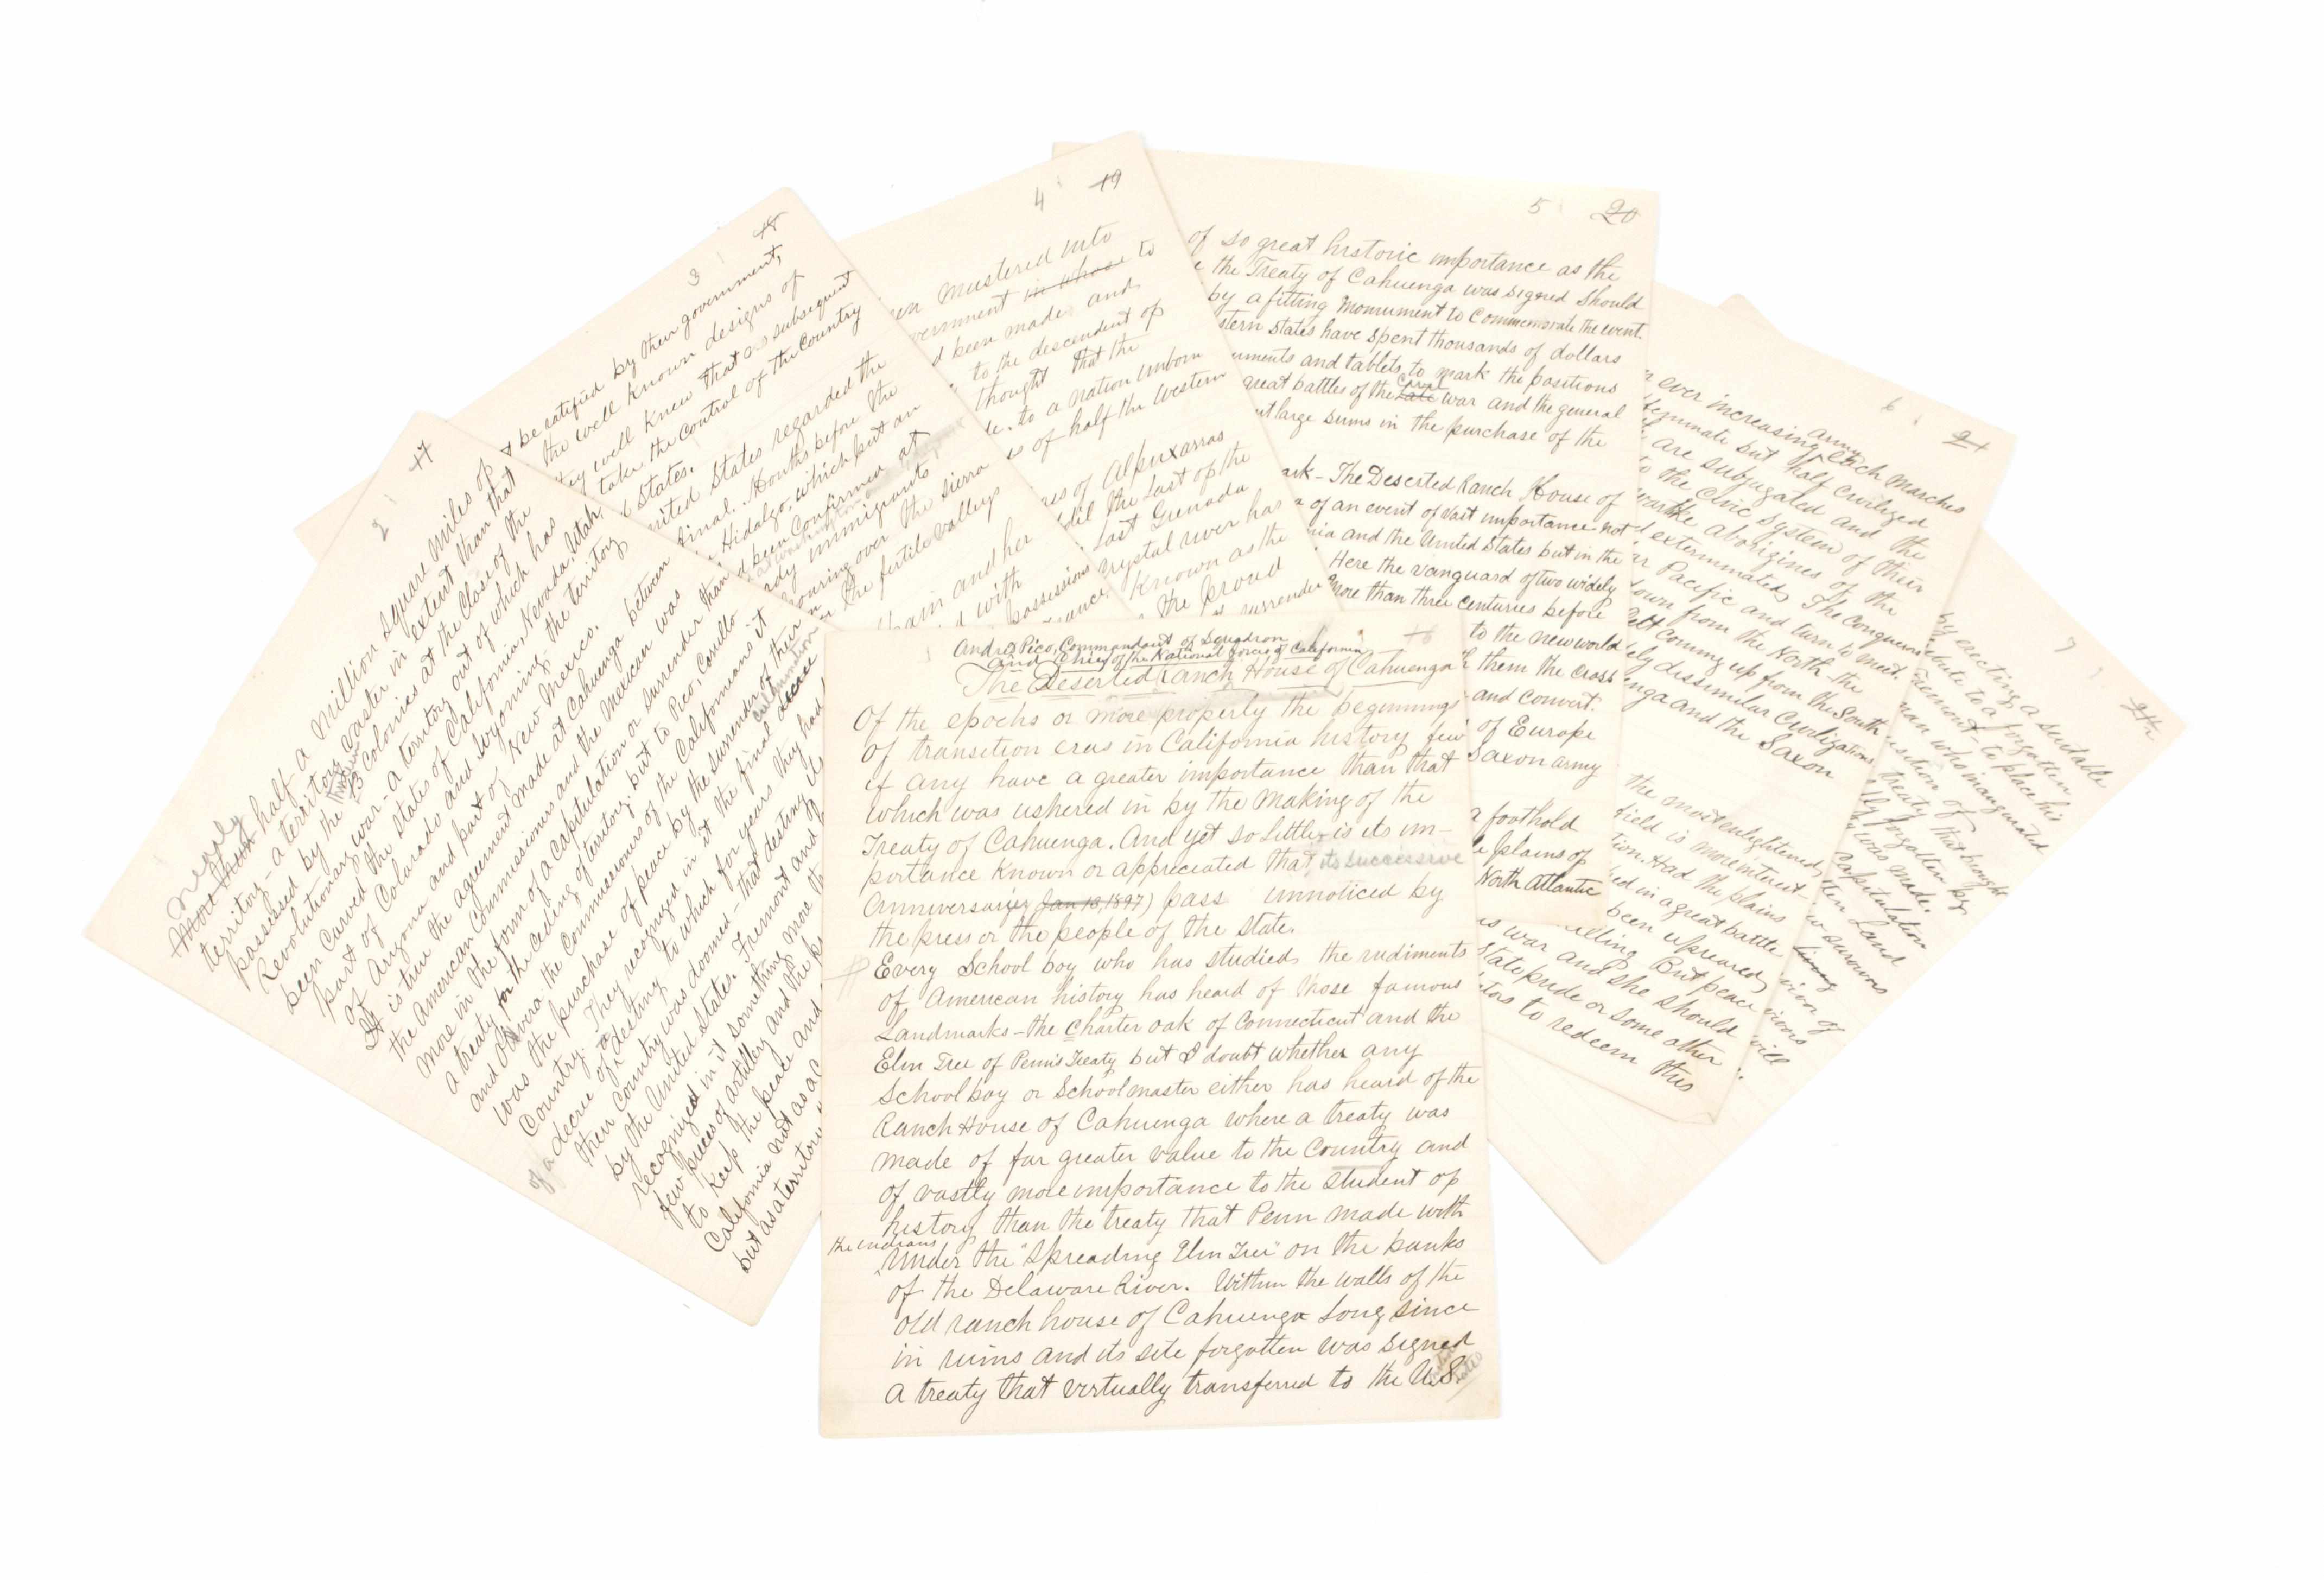 Andres Pico, Commandant of Squadron
and Chief of the National forces of California
The Deserted Ranch House of Cahuenga
Of the epochs or more properly the beginnings
of transition eras in California history few
if any have a greater importance than that
which was ushered in by the making of the
Treaty of Cahuenga. And yet so little is its im-
portance known or appreciated that its successive
anniversaries Jan 13, 1897) pass unnoticed by
the press or the people of the state.
Every School boy who has studied the rudiments
of American history has heard of those famous
Landmarks - the charter oak of Connecticut and the
Elm Tree of Penn's Treaty but I doubt whether any
School boy or School master either has heard of the
Ranch House of Cahuenga where a treaty was
made of far greater value to the Country and
of vastly more importance to the student of
history than the treaty that Penn made with
the indians
under the "Spreading Elm Tree" on the banks
of the Delaware River. Within the walls of the
old ranch house of Cahuenga long since
in ruins and its site forgotten was signed
a treaty that virtually transferred to the U.S.
2 17
nearly
More than half a million square miles of
territory - a territory vaster in extent than that
possessed by the thirteen 13 Colonies at the close of the
Revolutionary war - a territory out of which has
been carved the states of California, Nevada, Utah,
part of Colorado and Wyoming - the territory
of Arizona and part of New Mexico.
It is true the agreement made at Cahuenga between
the American Commissioners and the Mexican was
more in the form of a capitulation or surrender than
a treaty for the ceding of territory. but to Pico, Carrillo
and Olvera the Commissioners of the Californians it
was the purchase of peace by the surrender of their
Country. They recognized in it the final culmination
of a decree of destiny to which for years they had
their Country was doomed - that destiny its
by the United States. Fremont and of
recognized in it something more th
few pieces of artillery and the p
to keep the peace and
California not as a c
but as a territory
3 18
t be ratified by their government,
the well known designs of
they well knew that a subsequent
take the control of the Country
d States.
United States regarded the
final. Months before the
Hidalgo, which put an
d been confirmed at
Washington
immigrants
pouring over the Sierra
the fertile valleys
4 19
een mustered into
vernment in whose to
d been made and
to the descendent of
thought that the
le. to a nation unborn
s of half the western
res of Alpuxarras
the last of the
last Grenada
crystal river has
known as the
the proud
surrender
Spain and her
d with
possessions
5 20
of so great historic importance as the
e the Treaty of Cahuenga was signed should
by a fitting monument to commemorate the event.
stern states have spent thousands of dollars
uments and tablets to mark the positions
great battles of the late Civil war and the general
ut large sums in the purchase of the
ark - The Deserted Ranch House of
of an event of vast importance not
nia and the United States but in the
Here the vanguard of two widely
more than three centuries before
to the new world
them the cross
and convert.
of Europe
Saxon army
a foothold
e plains of
North Atlantic
s war and she should
State pride or some other
tors to redeem this
6 21
ever increasing army each marches
but half civilized
are subjugated and the
to the Civic system of their
the aborigines of the
d exterminated. The Conquerors
ar Pacific and turn to meet.
down from the North - the
elt coming up from the South
ely dissimilar Civilizations
nga and the Saxon
the most enlightened,
field is more interest-
tion. Had the plains
ed in a great battle
been upreared,
But peace
7 22
by erecting a suitable
tribute to a forgotten
Fremont - to place his
man who inaugurated
isition of
treaty that brought
lly forgotten by
was made.
Capitulation
Land
w surrows
living
vision of
will